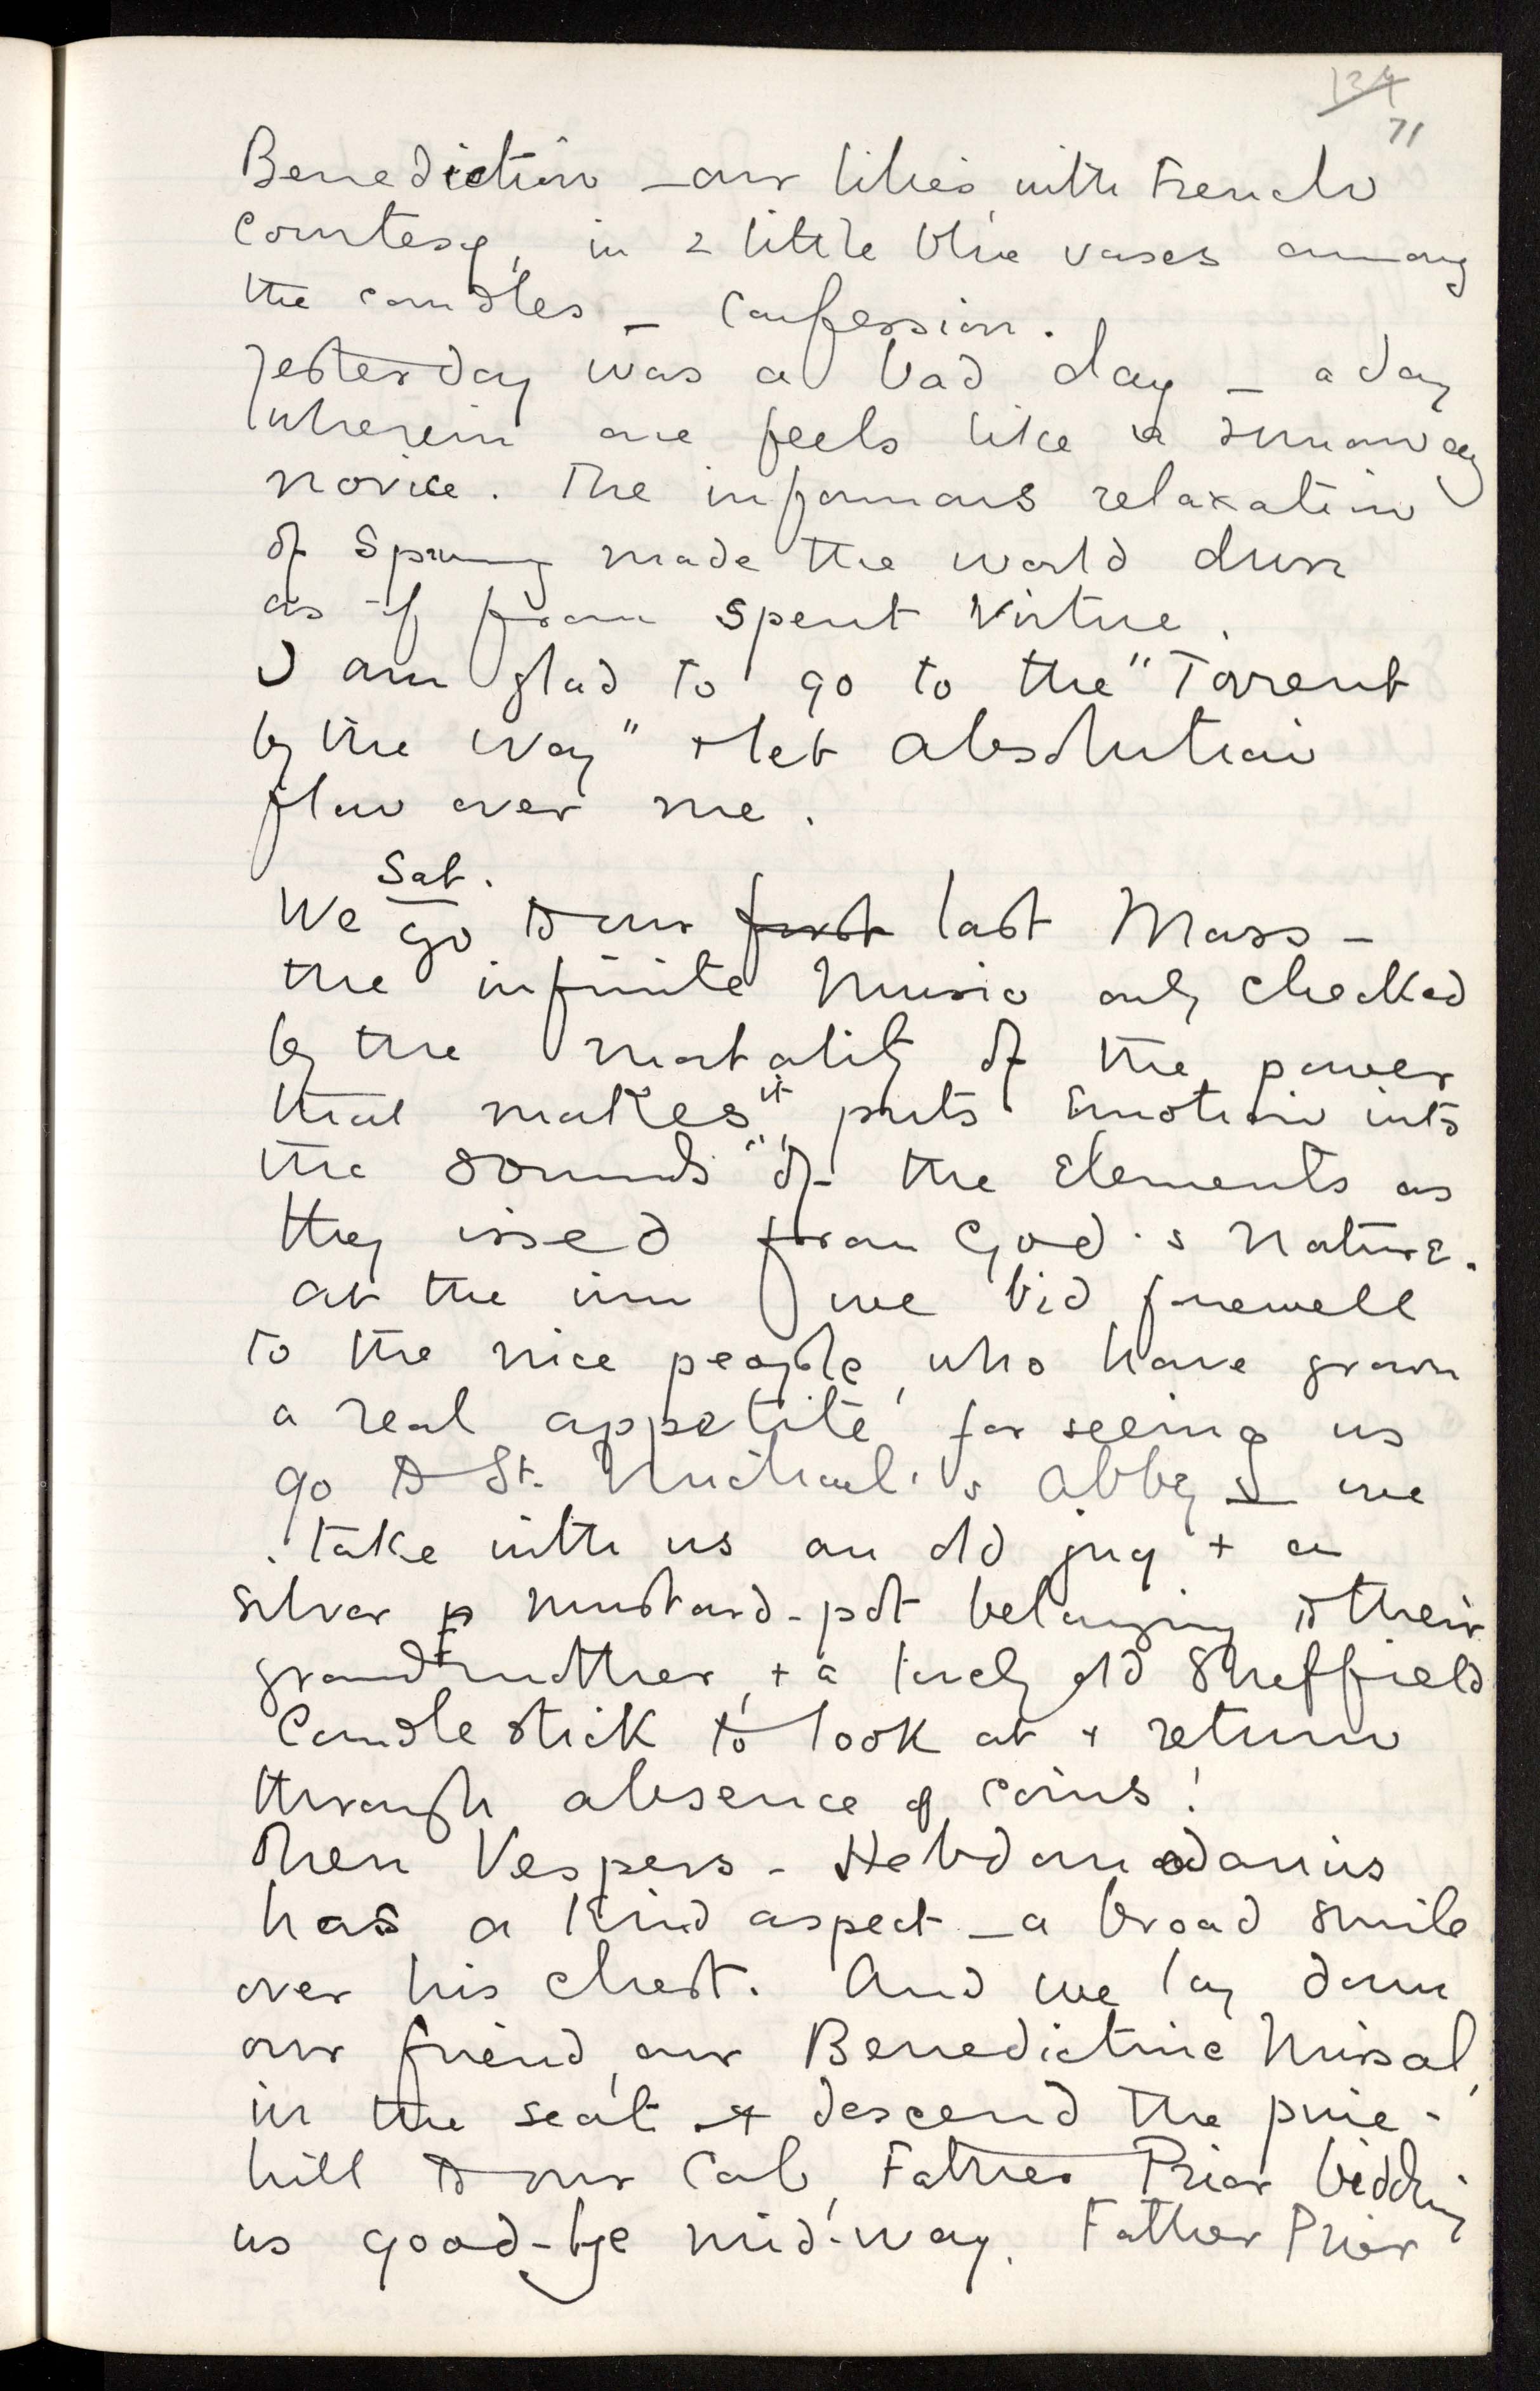 134
71
Benediction – our lilies, with French
courtesy, in 2 little blue vases among
the candles – Confession.
Yesterday was a bad day – a day
wherein one feels like a runaway
novice. The infamous relaxation
of Spring made the world dun
as if from spent virtue.
I am glad to go to the "Torrent
by the Way" + let absolution
flow over me.
Sat.
We go to our first last Mass –
the infinite Music only checked
by the mortality of the power
that makes it, puts Emotion into
the "sounds" of the Elements as
they issed from God's Nature.
At the inn we bid farewell
to the nice people, who have grown
a real appetite for seeing us
go to St. Michael's Abbey – we
take with us an old jug + a
silver p mustard-pot belonging to their
grandmother, + a lovely old Sheffield
Candlestick to look at + return
through absence of coins!
Then Vespers – Hebdomadarius
has a kind aspect – a broad smile
over his chest. And we lay down
our friend, our Benedictine Missal,
in the seat + descend the pine-
hill to our Cab, Father Prior bidding
us good-bye mid-way. Father Prior